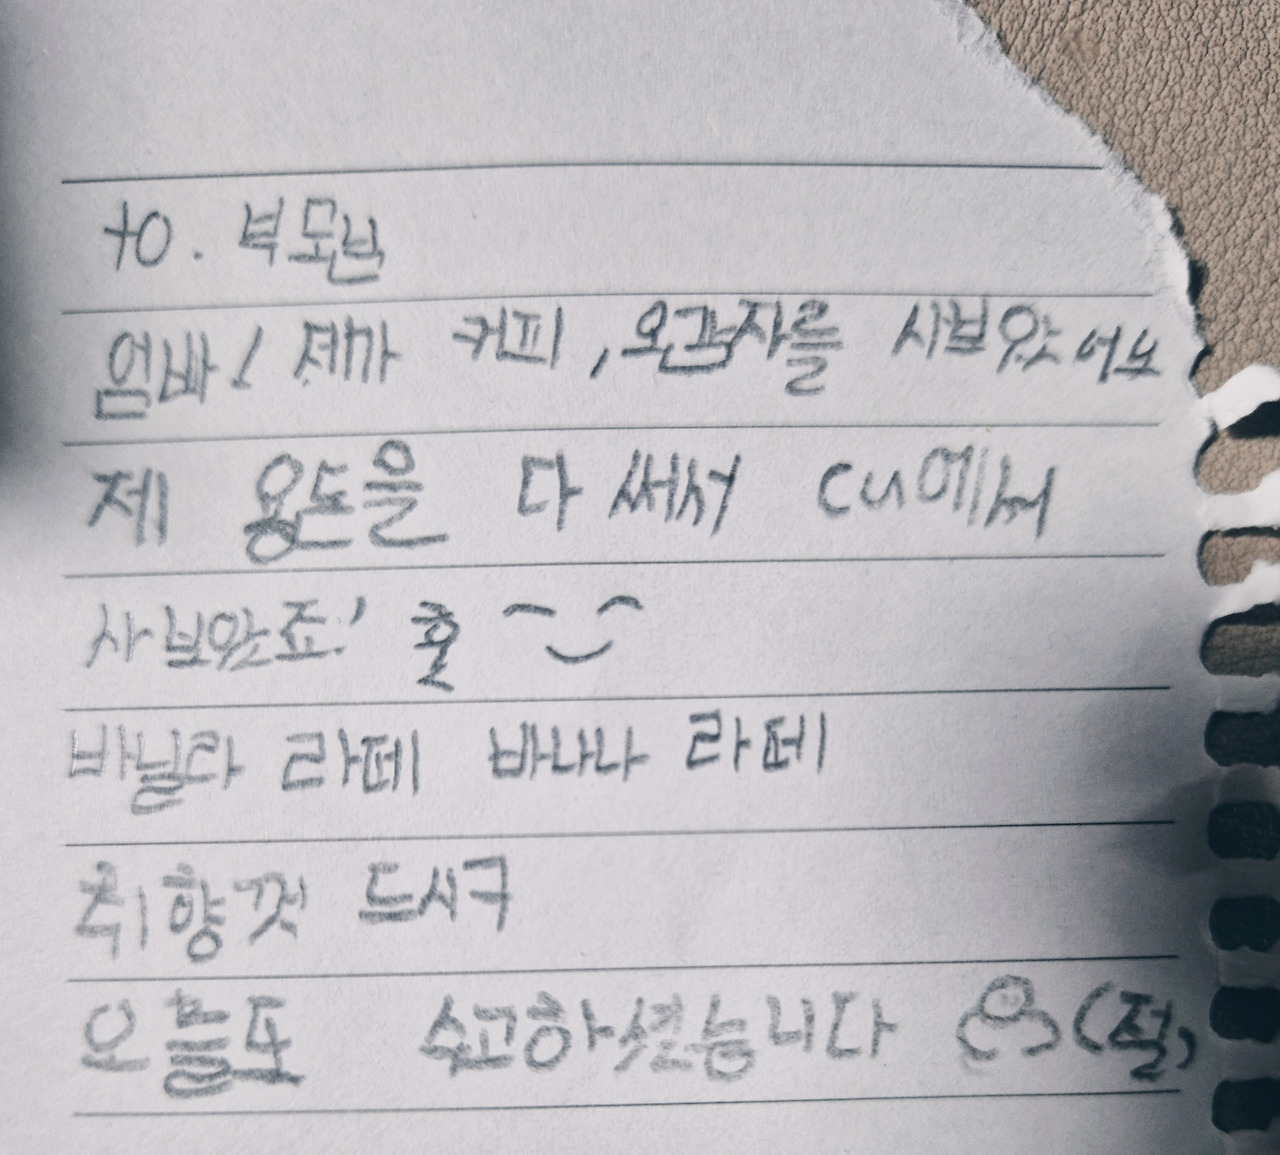 to. 부모님
엄빠! 제가 커피, 오감자를 사보았어요
제 용돈을 다 써서 cu에서
사보았죠! 훗
바닐라 라떼 바나나 라떼
취향껏 드시구
오늘도 수고하셨습니다 (절)